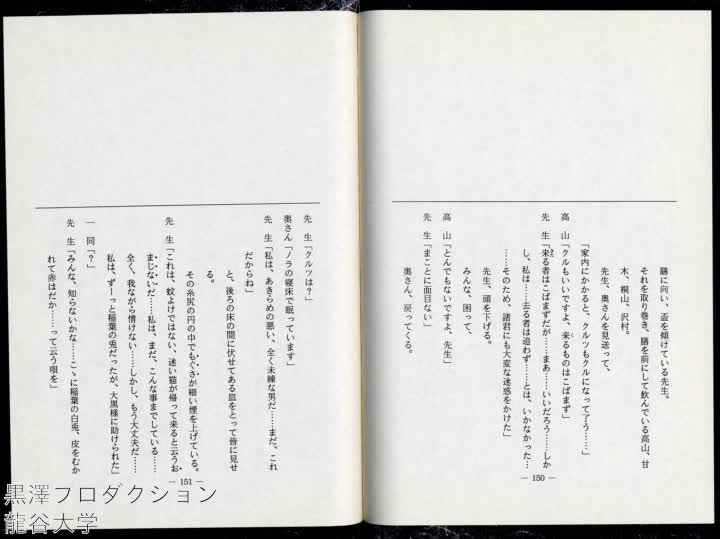 膳に向い、盃を傾けている先生。
それを取り巻き、膳を前にして飲んでいる高山、甘
木、桐山、沢村。
先生、奥さんを見送って、
「家内にかかると、クルツもクルになって了う……」
高　山「クルもいいですよ、来るものはこばまず」
先　生「来る者はこばまずだが……まあ……いいだろう……しか
し、私は……去る者は追わず……とは、いかなかった…
……そのため、諸君にも大変な迷惑をかけた」
みんな、困って、
先生、頭を下げる。
高　山「とんでもないですよ、先生」
先　生「まことに面目ない」
奥さん、戻ってくる。
― 150 ―
先　生「クルツは？」
奥さん「ノラの寝床で眠っています」
先　生「私は、あきらめの悪い、全く未練な男だ……まだ、これ
だからね」
と、後ろの床の間に伏せてある皿をとって皆に見せ
る。
その糸尻の円の中でもぐさが細い煙を上げている。
先　生「これは、蚊よけではない、迷い猫が帰って来ると云うお
まじないだ……私は、まだ、こんな事までしている……
全く、我ながら情けない……しかし、もう大丈夫だ……
私は、ずーっと稲葉の兎だったが、大黒様に助けられた」
一　同「？」
先　生「みんな、知らないかな……こゝに稲葉の白兎、皮をむか
れて赤はだか……って云う唄を」
― 151 ―
黒澤プロダクション
龍谷大学